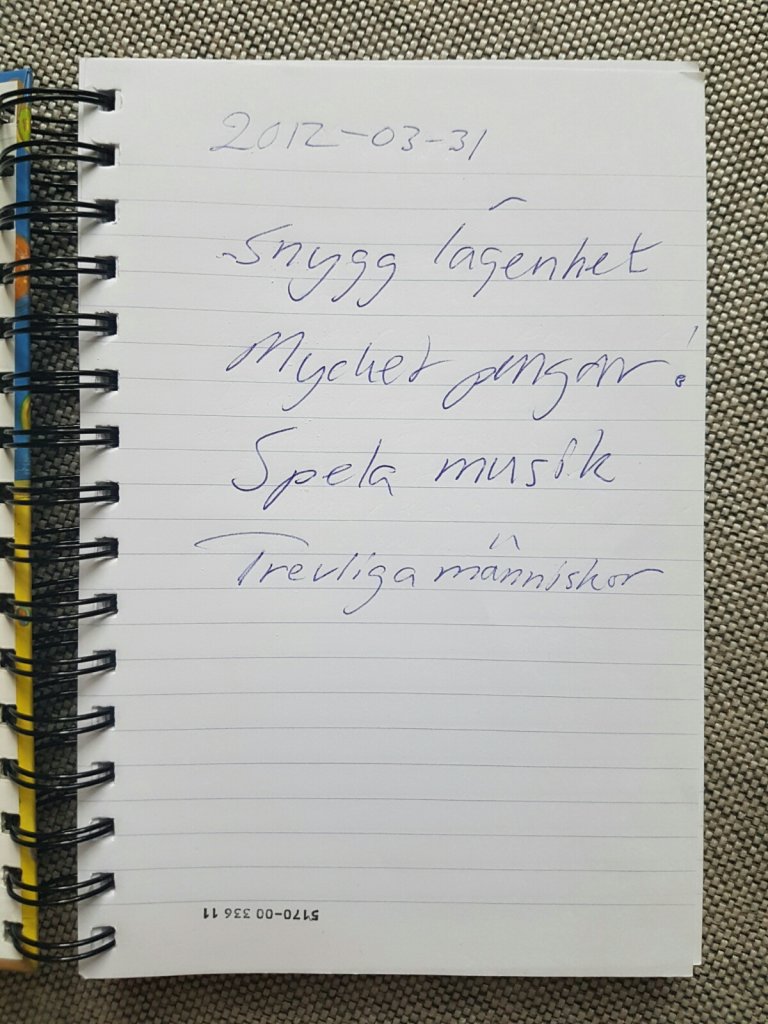 2012-03-31
Snygg lägenhet
Mycket pengar!
Spela musik
Trevliga människor
5170-00 336 11